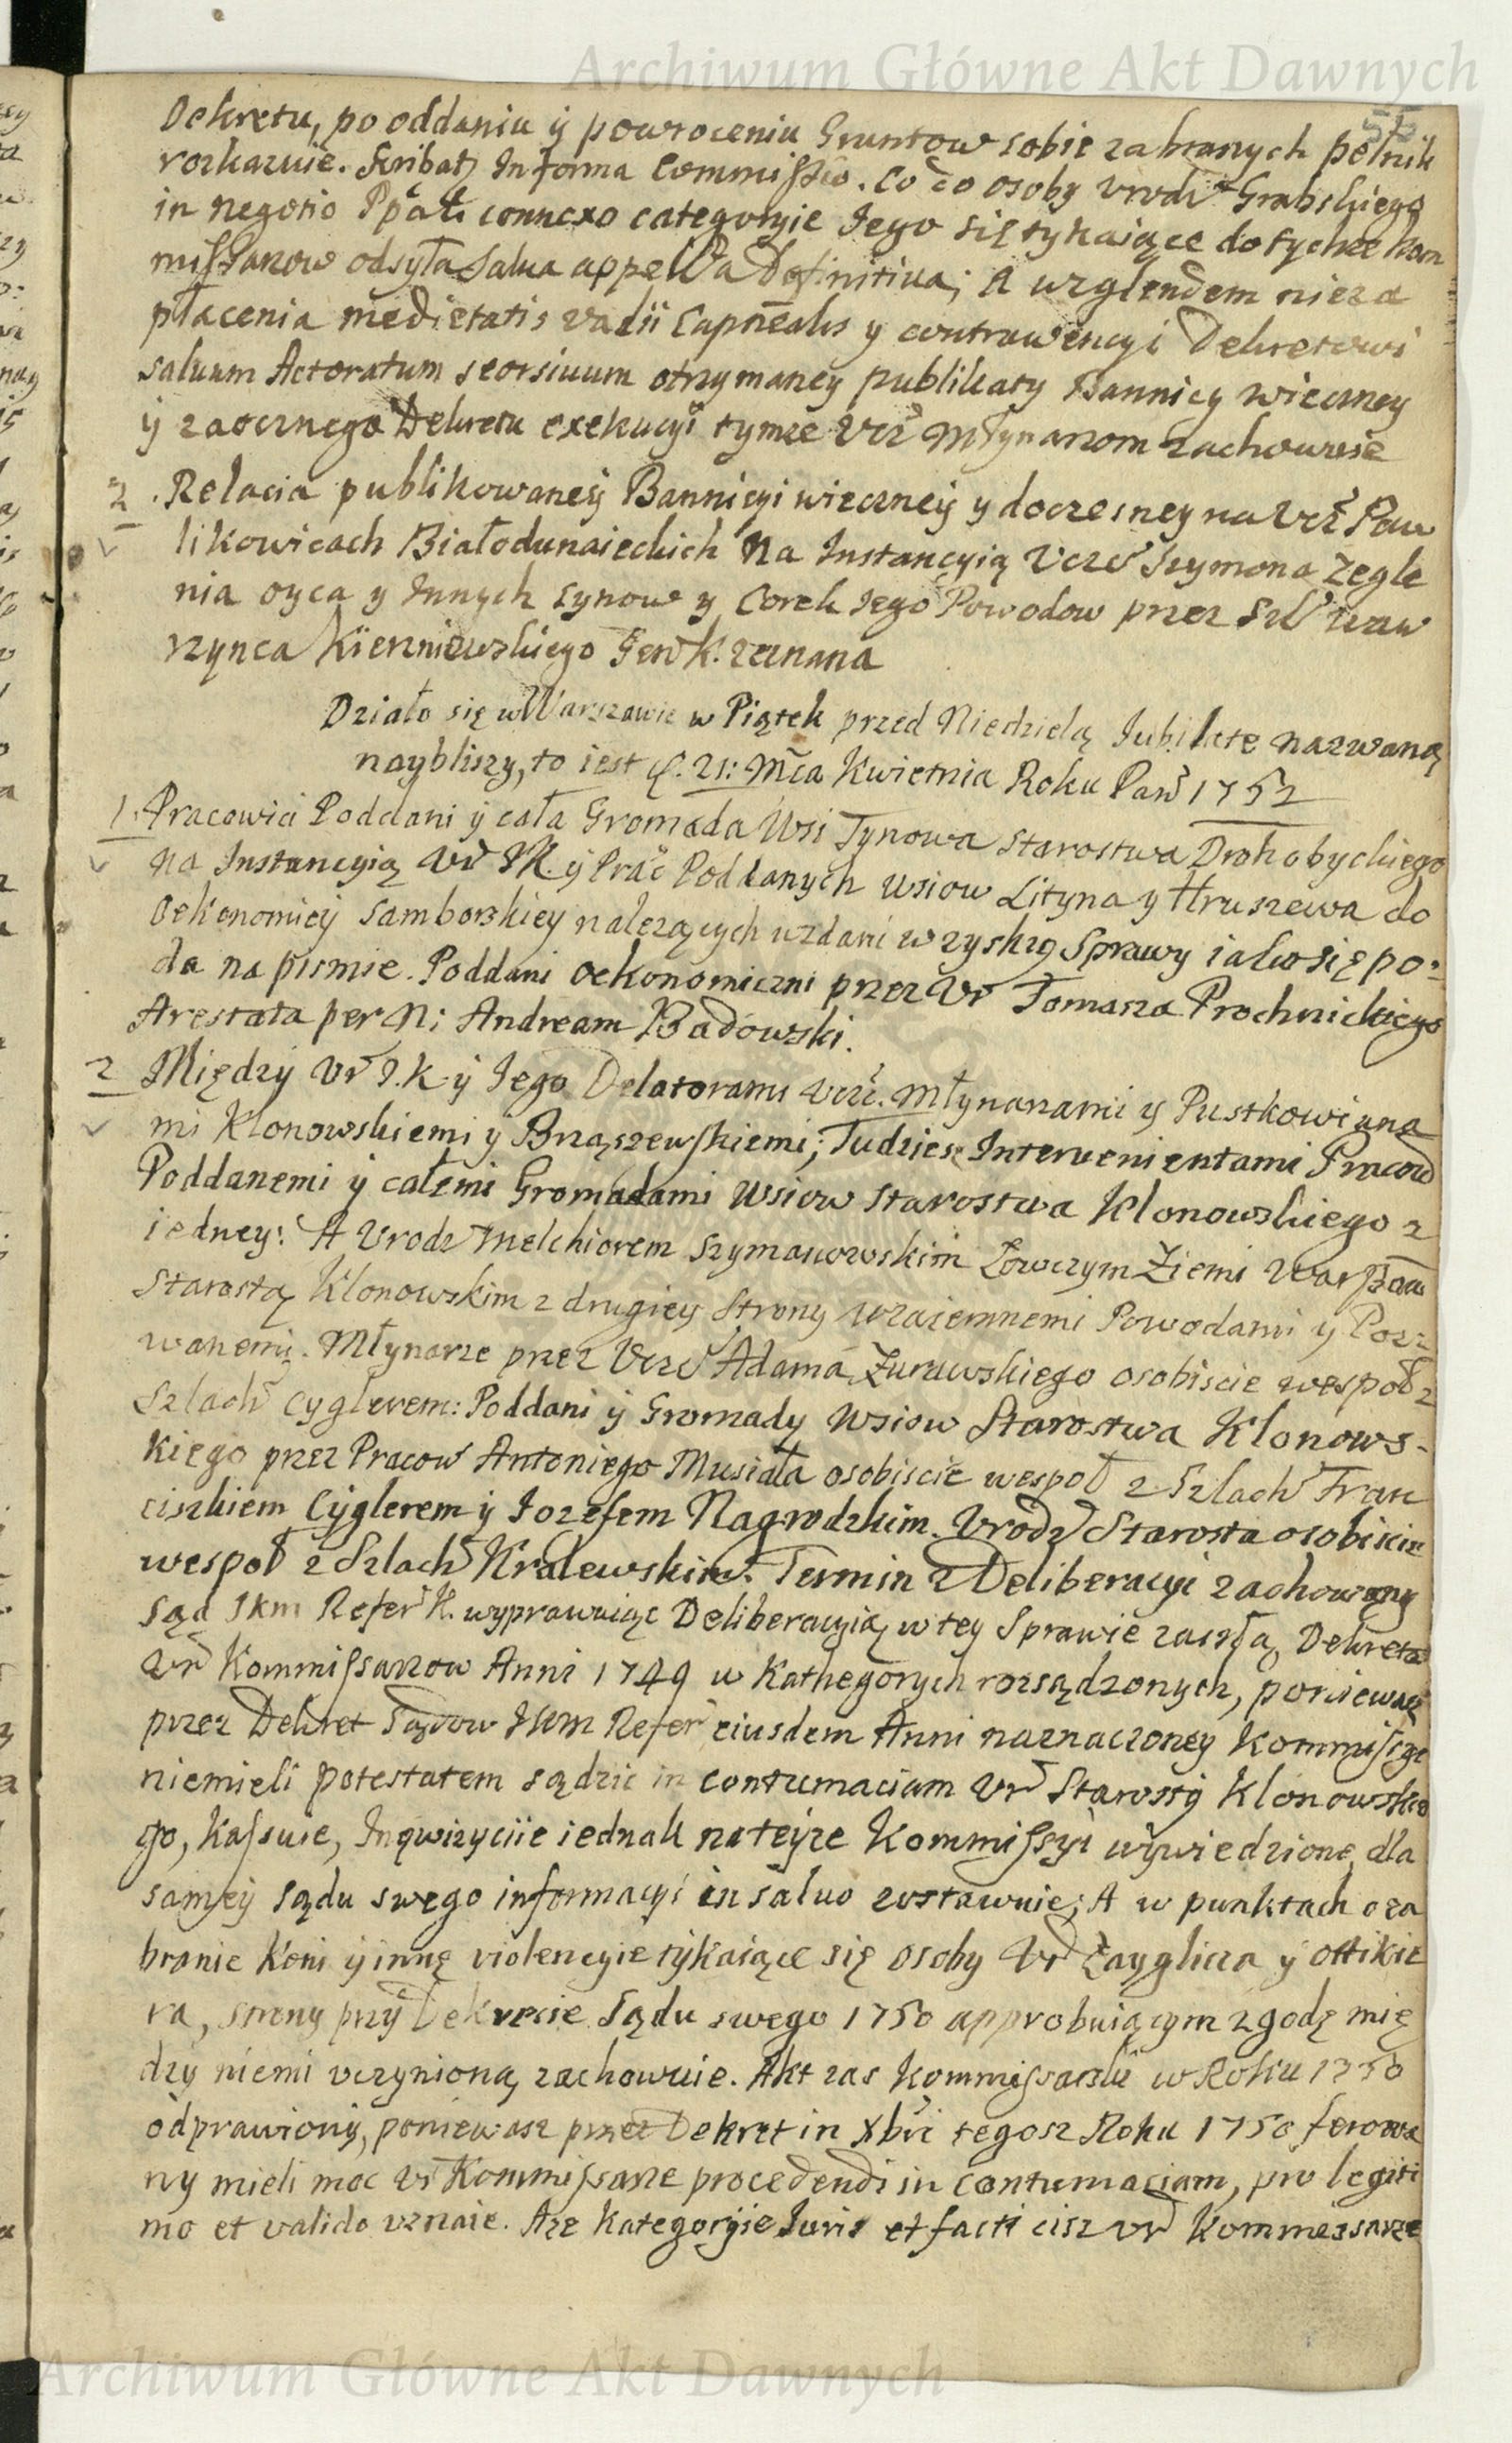 Archiwum Główne Akt Dawnych
55
Dekretu, po oddaniu ÿ powroceniu Gruntow sobie zabranych pełnić
rozkazuie. Scribatz In forma Commissio. Co do osoby Vrodź Grabskiego
in negotio Ppałi connexo categoryie Iego się tykaiące do tychże kom
missarzow odsyła salua appellõa Definitiua; A względem nieza
płacenia medietatis vadii Capnealis y contrawencyi Dekretowi
saluum Actoratum seorsiuum otrzymaney publikaty Bannicy wieczney
ÿ zaocznego Dekretu exekucyi tymże Vcź Młynarzom zachowuie
2. Relacia publikowaneÿ Bannicyi wieczneÿ y doczesney na Vcź Paw
likowicach Białodunaieckich Na Instancyią Vczć Szymona Zegle
nia oyca y Innych synow y Corek Iego Powodow przez Szl Waw
rzynca Kierzniewskiego Gen K. zeznana
Działo się w Warszawie w Piątek przed Niedzielą Iubilate nazwaną
naybliszy, to iest d. 21: Mca Kwietnia Roku Pań 1752
1. Pracowici Poddani ÿ cała Gromada Wsi Tynowa Starostwa Drohobyckiego
Na Instancyią Vr IK. ÿ Prać Poddanych wsiow Lityna y Hruszewa do
Oekonomiey Samborskiey należących wzdani w zyskzy Sprawy iako się po:
da na pismie. Poddani oekonomiczni przez Vr Tomasza Prochnickiego
Arestata per N: Andream Badowski.
2 Międzÿ Vr I.K ÿ Iego Delatorami Vczć. Młynarzami y Pustkowiana
mi Klonowskiemi y Brząszewskiemi; Tudziesz Interuenientami Pracow
Poddanemi ÿ całemi Gromadami Wsiow Starostwa Klonowskiego z
iedney: A Vrodz Melchiorem Szymanowskim Łowczym Ziemi Warszaw
Starostą Klonowskim z drugiey Strony wzaiemnemi Powodami y Poz:
wanemi. Młynarze przez Vczć Adama Żurawskiego osobiscie wespoł z
Szlach Cyglerem: Poddani ÿ Gromady Wsiow Starostwa Klonows-
kiego przez Pracow Antoniego Musiała osobiscie wespoł z Szlach Fran
ciszkiem Cÿglerem ÿ Iozefem Nagrodzkim. Vrodz Starosta osobiscie
wespoł z Szlach Kralewskim. Termin z Deliberacyi zachowany
Sąd Ikm Refer K. wyprawuiąc Deliberacyią w tey Sprawie zaszłą, Dekreta
Vr Kommissarzow Anni 1749 w Kathegorych rozsądzonych, poniewasz
przez Dekret Sądow IKM Refer eiusdem Anni naznaczoney Kommiscze
niemieli potestatem sądzic in contumaciam Vr Starostÿ Klonowskie
go, Kassuie, Inqwizyciie iednak na teÿże Kommissyi wÿwiedzione dla
sameÿ sądu swego informacyi in saluo zostawuie; A w punktach o za
branie Koni ÿ inne violencyie tÿkaiące się osoby Vr Zayglicza ÿ Offikie
ra, strony przÿ Dekrecie Sądu swego 1750 approbuiącym zgodę mię
dzÿ niemi vczynioną zachowuie. Akt zas Kommissarski w Roku 1750
odprawionÿ, poniewasz przez Dekret in Xbri tegosz Roku 1750 ferowa
ny mieli moc Vr Kommissarze procedendi in contumaciam, pro legiti
mo et valido vznaie. A że Kategorÿie Iuris et facti cisz Vr Kommessarze
Archiwum Główne Akt Dawnych